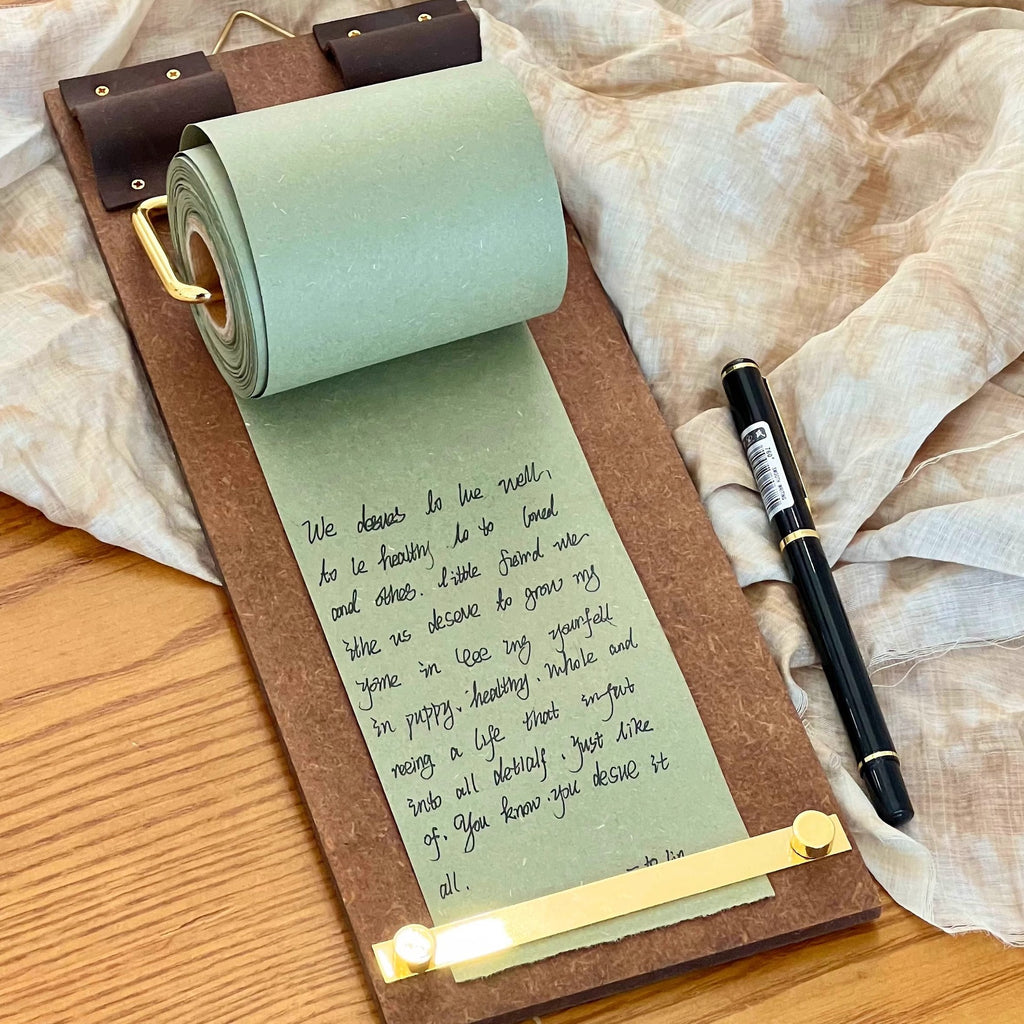 We deserves to live well,
to be healthy to to loved
and othes. little friend we
ithe us deserve to grow my
yome in ing yourfell
in puppy. healthy. whole and
reeing a life that infut
into all detialf. Just like
of. You know. you desue it
all. to lin
760°